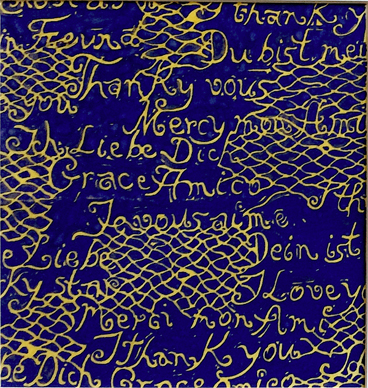 thank y
in Freund Du bist mei
Thanky vous
you Mercy mon Ami
Ich Liebe Dich
Grace Amico
Je vous aime
e Liebe Dein ist
ky star I Love yo
Merci mon Ami
I thank you
be Dich Grace Amico